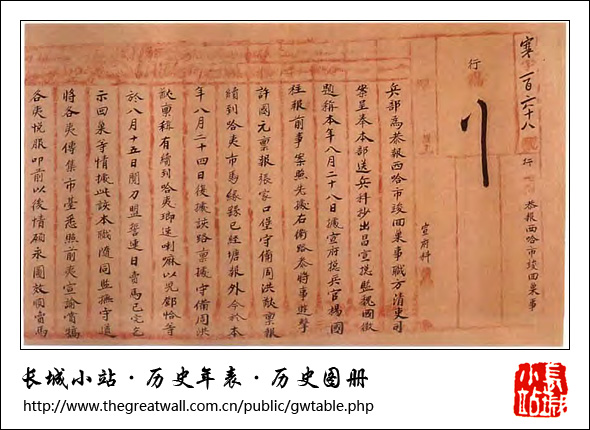 寒一百六十八號
行
恭報西哈市竣回巢事
行
宣府科
兵部爲恭報西哈市竣回巢事職方清吏司
案呈奉本部送兵科抄出昌宣援監魏國徵
題稱本年八月二十八日據宣府援兵官楊國
柱報前事案照先據右衛路叅將事遊擊
許國元稟報張家口堡守備周洪猷稟報
續到哈夷市馬緣繇已經塘報外今於本
年八月二十四日後據該路稟據守備周洪
猷稟稱有續到哈夷瑯速喇嘛以兕鄧恰等
於八月十五日閱刀盟誓連日賣馬已完乞
示回巢等情據此該本職隨同監撫守道
將各夷傳集市臺悉照前夷宣諭賞犒
各夷悅服叩前以後情願永圖放順賣馬
长城小站·历史年表·历史图册
http://www.thegreatwall.com.cn/public/gwtable.php
长城小站